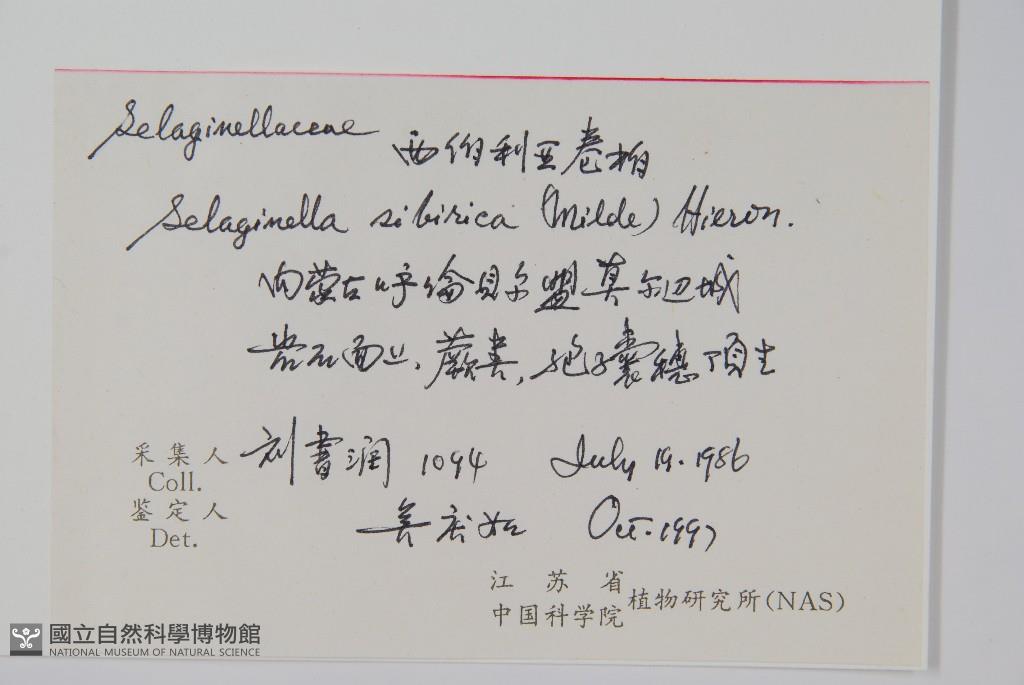 Selaginellaceae
西伯利亚卷柏
Selaginella sibirica (Milde) Hieron.
内蒙古呼倫貝尔盟莫尔辺城
岩石面上，蕨, 孢子囊穗頂生
采集人 刘書潤 1094 July 19.1986
Coll.
鉴定人 Oct.1997
Det.
江苏省
中国科学院 植物研究所(NAS)
國立自然科學博物館
NATIONAL MUSEUM OF NATURAL SCIENCE